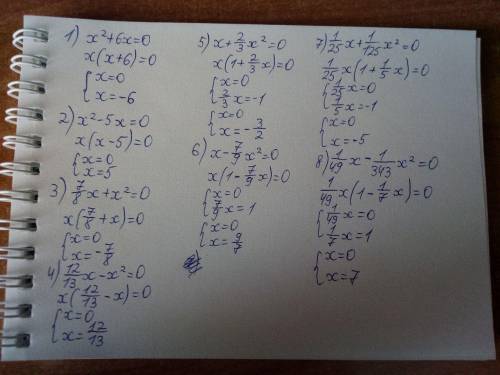 1) x²+6x=0
x(x+6)=0
{x=0
{x=-6
2) x²-5x=0
x(x-5)=0
{x=0
{x=5
3) 7/8x+x²=0
x(7/8+x)=0
{x=0
{x=-7/8
4) 12/13x-x²=0
x(12/13-x)=0
{x=0
{x=12/13
5) x+2/3x²=0
x(1+2/3x)=0
{x=0
{2/3x=-1
{x=0
{x=-3/2
6) x-7/9x²=0
x(1-7/9x)=0
{x=0
{7/9x=1
{x=0
{x=9/7
7) 1/25x+1/125x²=0
1/25x(1+1/5x)=0
{1/25x=0
{1/5x=-1
{x=0
{x=-5
8) 1/49x-1/343x²=0
1/49x(1-1/7x)=0
{1/49x=0
{1/7x=1
{x=0
{x=7